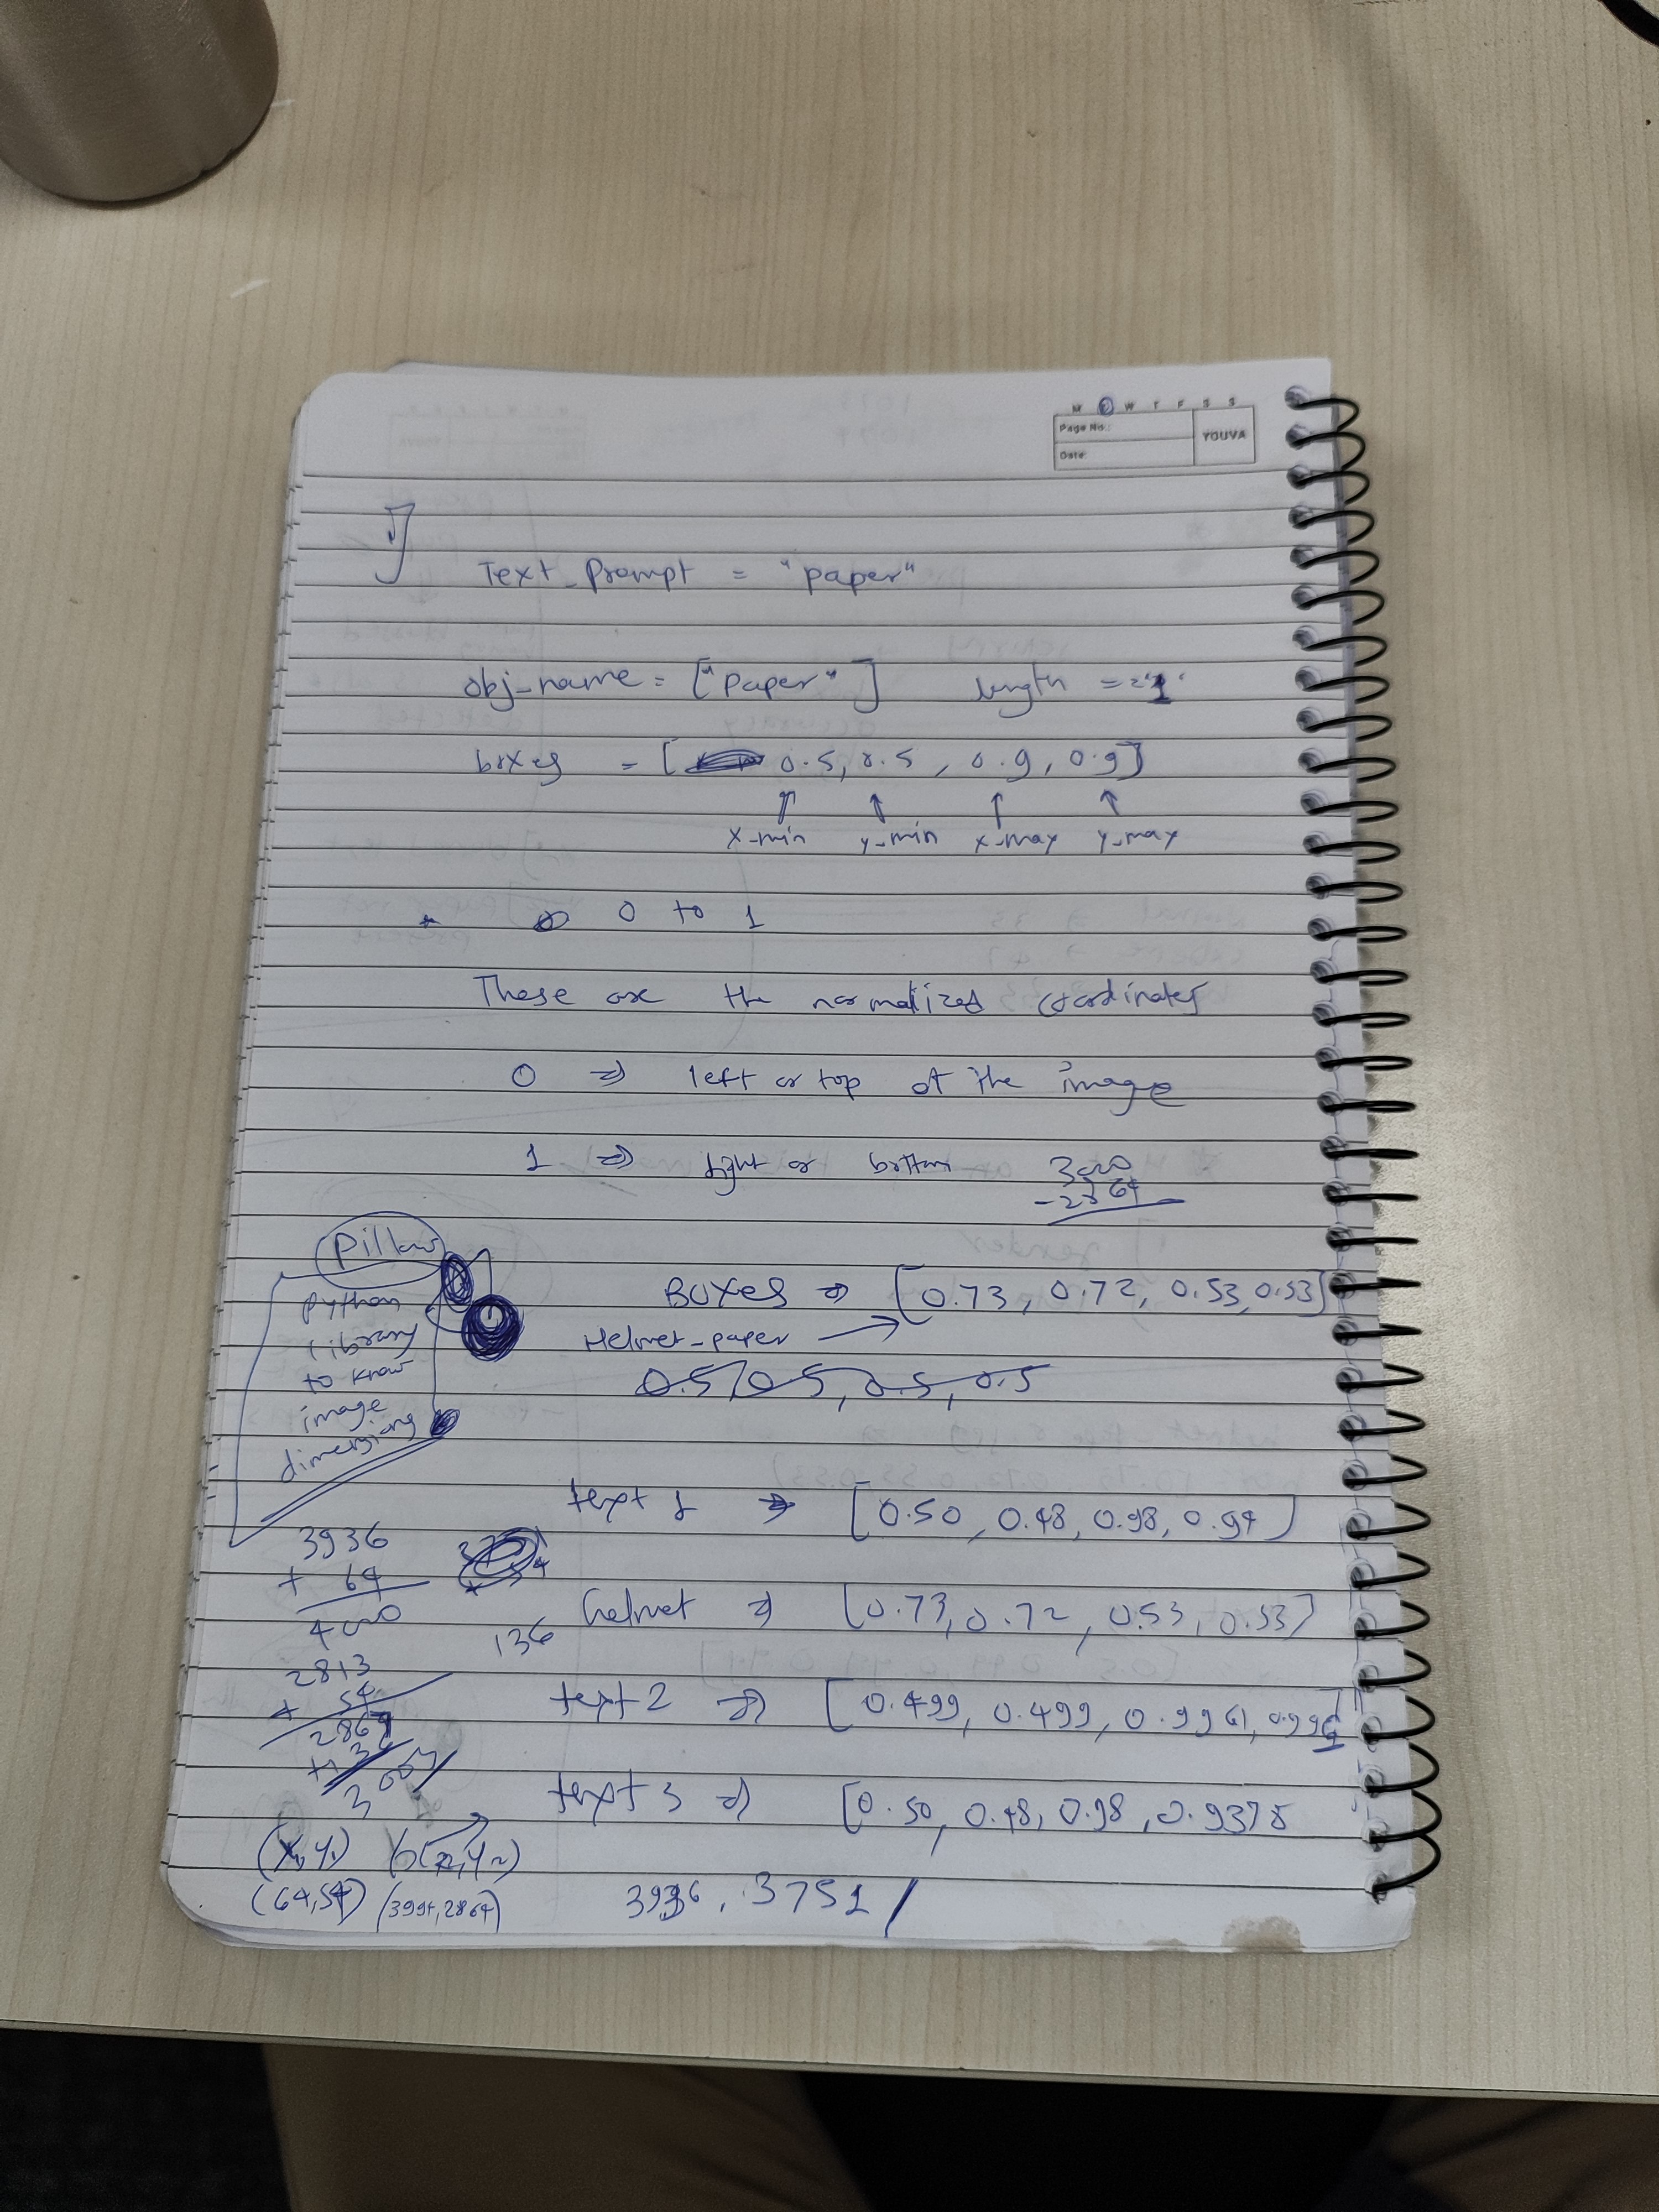 M T W T F S S
Page No.:
YOUVA
Date:
Text_Prompt = "paper"
obj-name = ["paper"] length == "1"
boxes = [ 0.5, 0.5, 0.9, 0.9]
x-min y-min x-max y-max
0 to 1
These are the normalized coordinates
0 ⇒ left or top of the image
1 ⇒ right or bottom
3000
- 2864
Pillow
python
library
to know
image
dimensions
BOXES ⇒ [0.73, 0.72, 0.53, 0.53]
Helmet-paper →
0.5, 0.5, 0.5, 0.5
text 1 ⇒ [0.50, 0.48, 0.98, 0.94]
3936
+ 64
4000
helmet ⇒ [0.73, 0.72, 0.53, 0.53]
136
2813
+ 54
2867
text 2 ⇒ [0.499, 0.499, 0.9961, 0.996]
text 3 ⇒ [0.50, 0.48, 0.98, 0.9378
(x1, y1) (x2, y2)
(64, 54) (3994, 2864)
3936, 3751